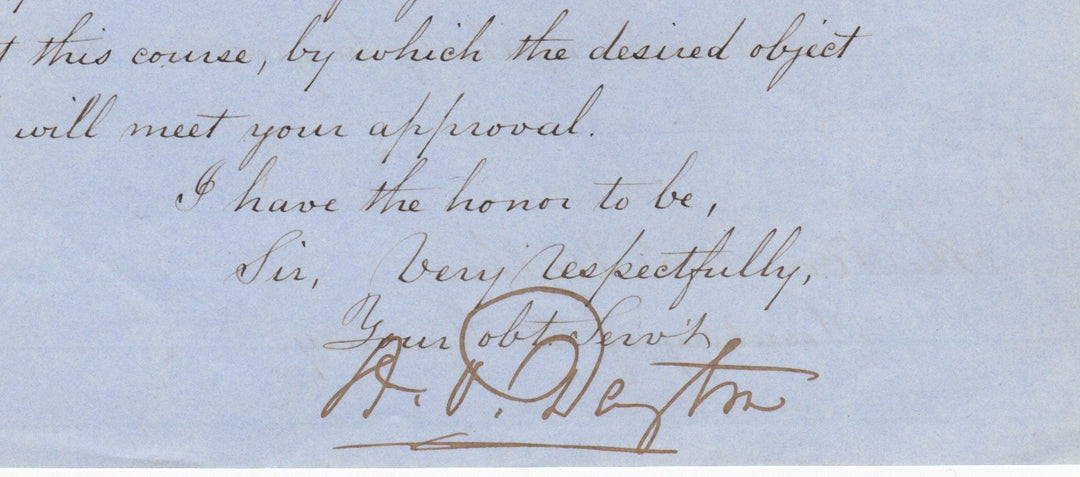 this course, by which the desired object
will meet your approval.
I have the honor to be,
Sir, Very respectfully,
Your obt. Serv't
Dayton